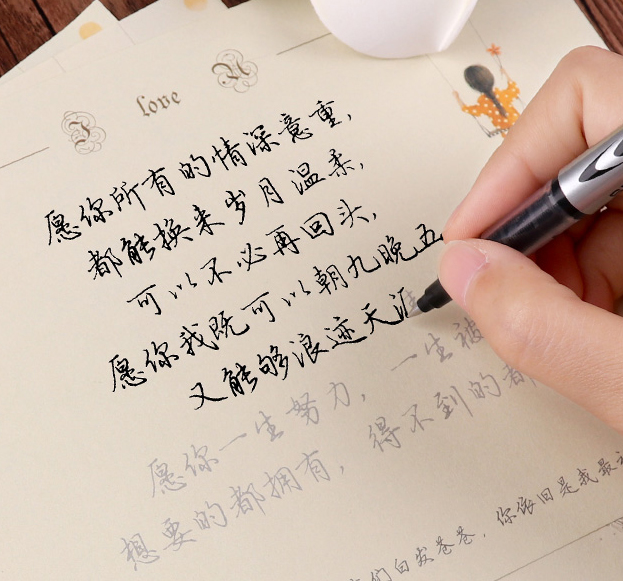 I love U
愿你所有的情深意重,
都能换来岁月温柔,
可以不必再回头,
愿你我既可以朝九晚五
又能够浪迹天涯
愿你一生努力，一生被
想要的都拥有，得不到的都
们白发苍苍，你依旧是我最